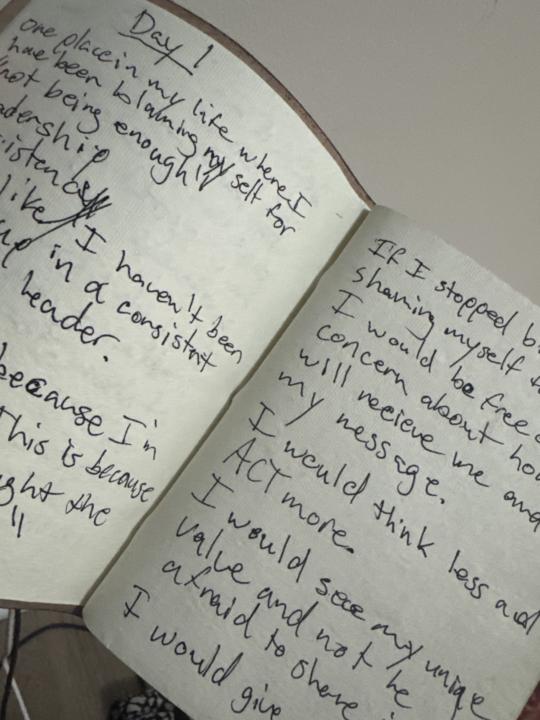 Day 1
one place in my life where I
have been blaming my self for
"not being enough"
I haven't been
in a consistent
leader.
because I'm
This is because
the
If I stopped
shaming myself
I would be free
concern about
will recieve me and
my message.
I would think less and
ACT more.
I would see my unique
value and not be
afraid to share
I would give